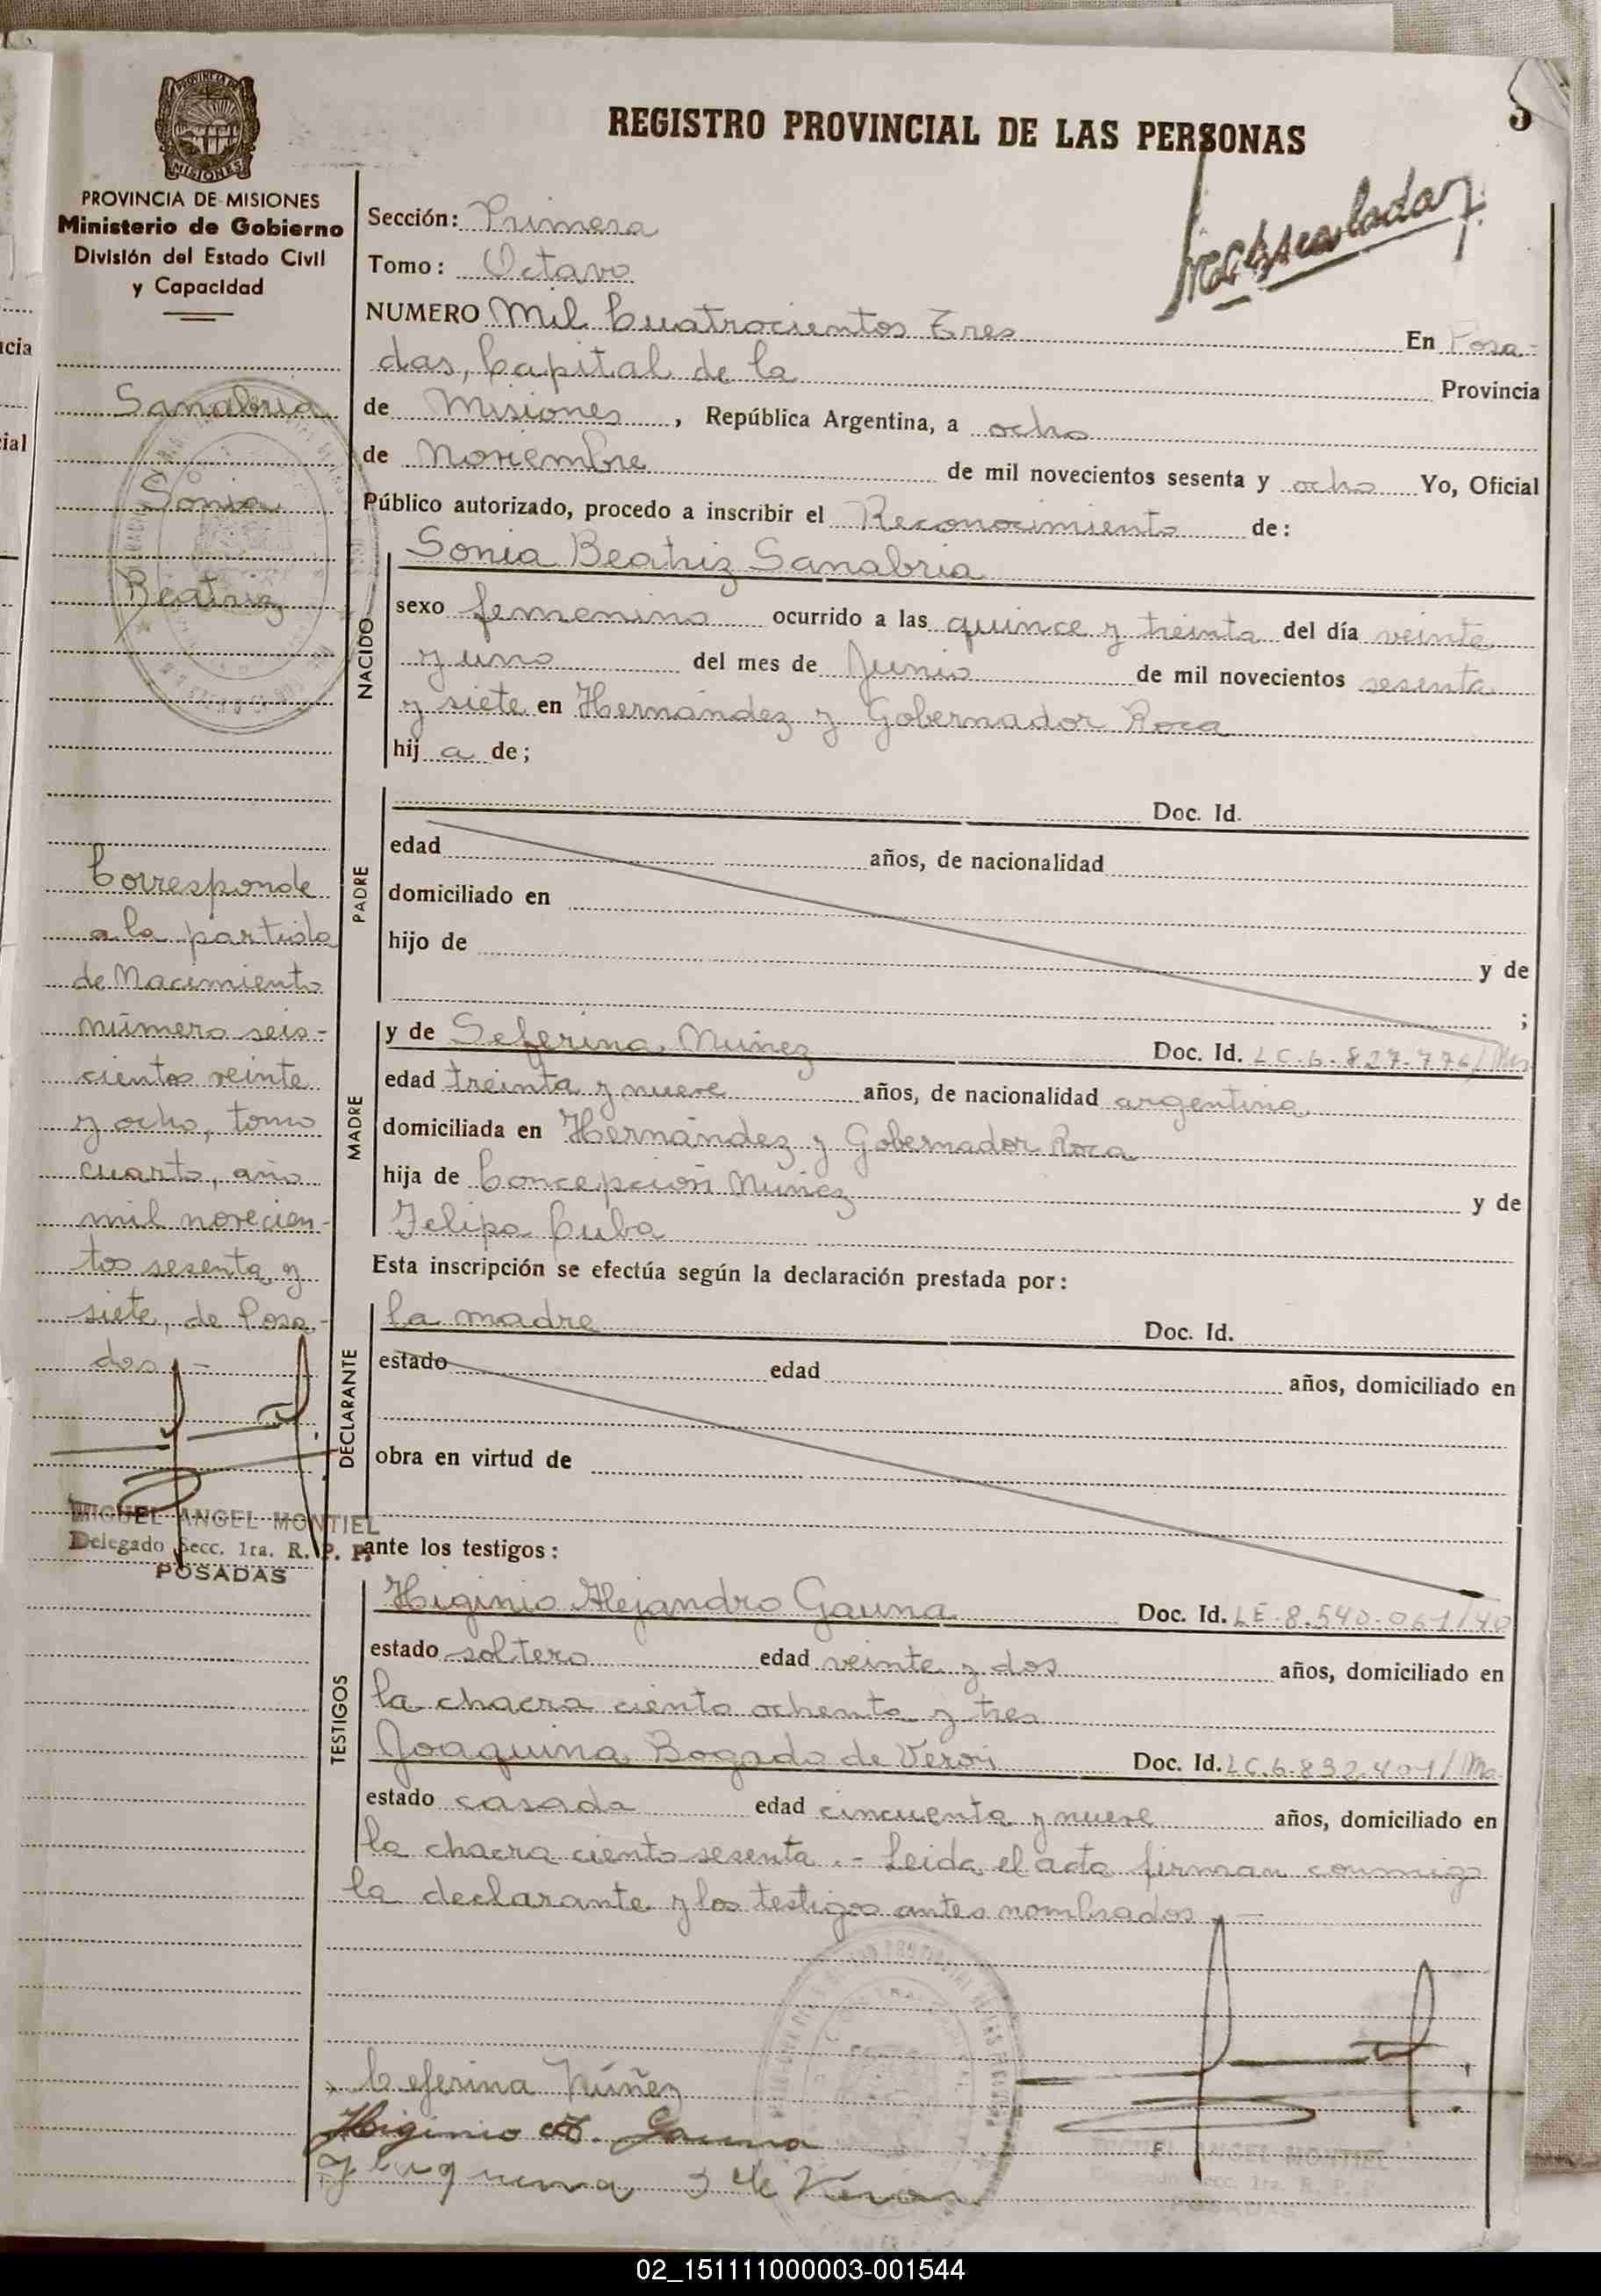 PROVINCIA DE MISIONES
PROVINCIA DE MISIONES
Ministerio de Gobierno
División del Estado Civil
y Capacidad
Sanabria
Sonia
Beatriz
Corresponde
a la partida
de Nacimiento
número seis-
cientos veinte
y ocho, tomo
cuarto, año
mil novecien-
tos sesenta y
siete, de Posa-
das.-
MIGUEL ANGEL MONTIEL
Delegado Secc. 1ra. R. P. P.
POSADAS
REGISTRO PROVINCIAL DE LAS PERSONAS
Sección: Primera
Tomo: Octavo
NUMERO Mil Cuatrocientos Tres En Posa-
das, Capital de la Provincia
de Misiones, República Argentina, a ocho
de Noviembre de mil novecientos sesenta y ocho Yo, Oficial
Público autorizado, procedo a inscribir el Reconocimiento de:
NACIDO
Sonia Beatriz Sanabria
sexo femenino ocurrido a las quince y treinta del día veinte
y uno del mes de Junio de mil novecientos sesenta
y siete en Hernández y Gobernador Roca
hij a de;
PADRE
Doc. Id.
edad años, de nacionalidad
domiciliado en
hijo de y de
;
MADRE
y de Seferina Núñez Doc. Id. LC.6.827.776/Ms
edad treinta y nueve años, de nacionalidad argentina
domiciliada en Hernández y Gobernador Roca
hija de Concepción Núñez y de
Felipa Cuba
Esta inscripción se efectúa según la declaración prestada por:
DECLARANTE
la madre Doc. Id.
estado edad años, domiciliado en
obra en virtud de
ante los testigos:
TESTIGOS
Higinio Alejandro Gauna Doc. Id. LE.8.540.061/40
estado soltero edad veinte y dos años, domiciliado en
la chacra ciento ochenta y tres
Joaquina Bogado de Verón Doc. Id. LC.6.832.401/Ms
estado casada edad cincuenta y nueve años, domiciliado en
la chacra ciento sesenta.- Leida el acta firman conmigo
la declarante y los testigos antes nombrados.-
Ceferina Núñez
Higinio A. Gauna
MIGUEL ANGEL MONTIEL
02_151111000003-001544